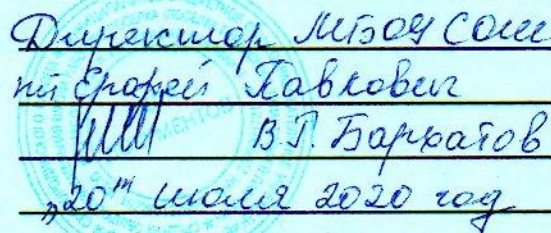 Директор МБОУ СОШ
пт Ерофей Павлович
В.Г. Бархатов
„20" июля 2020 год